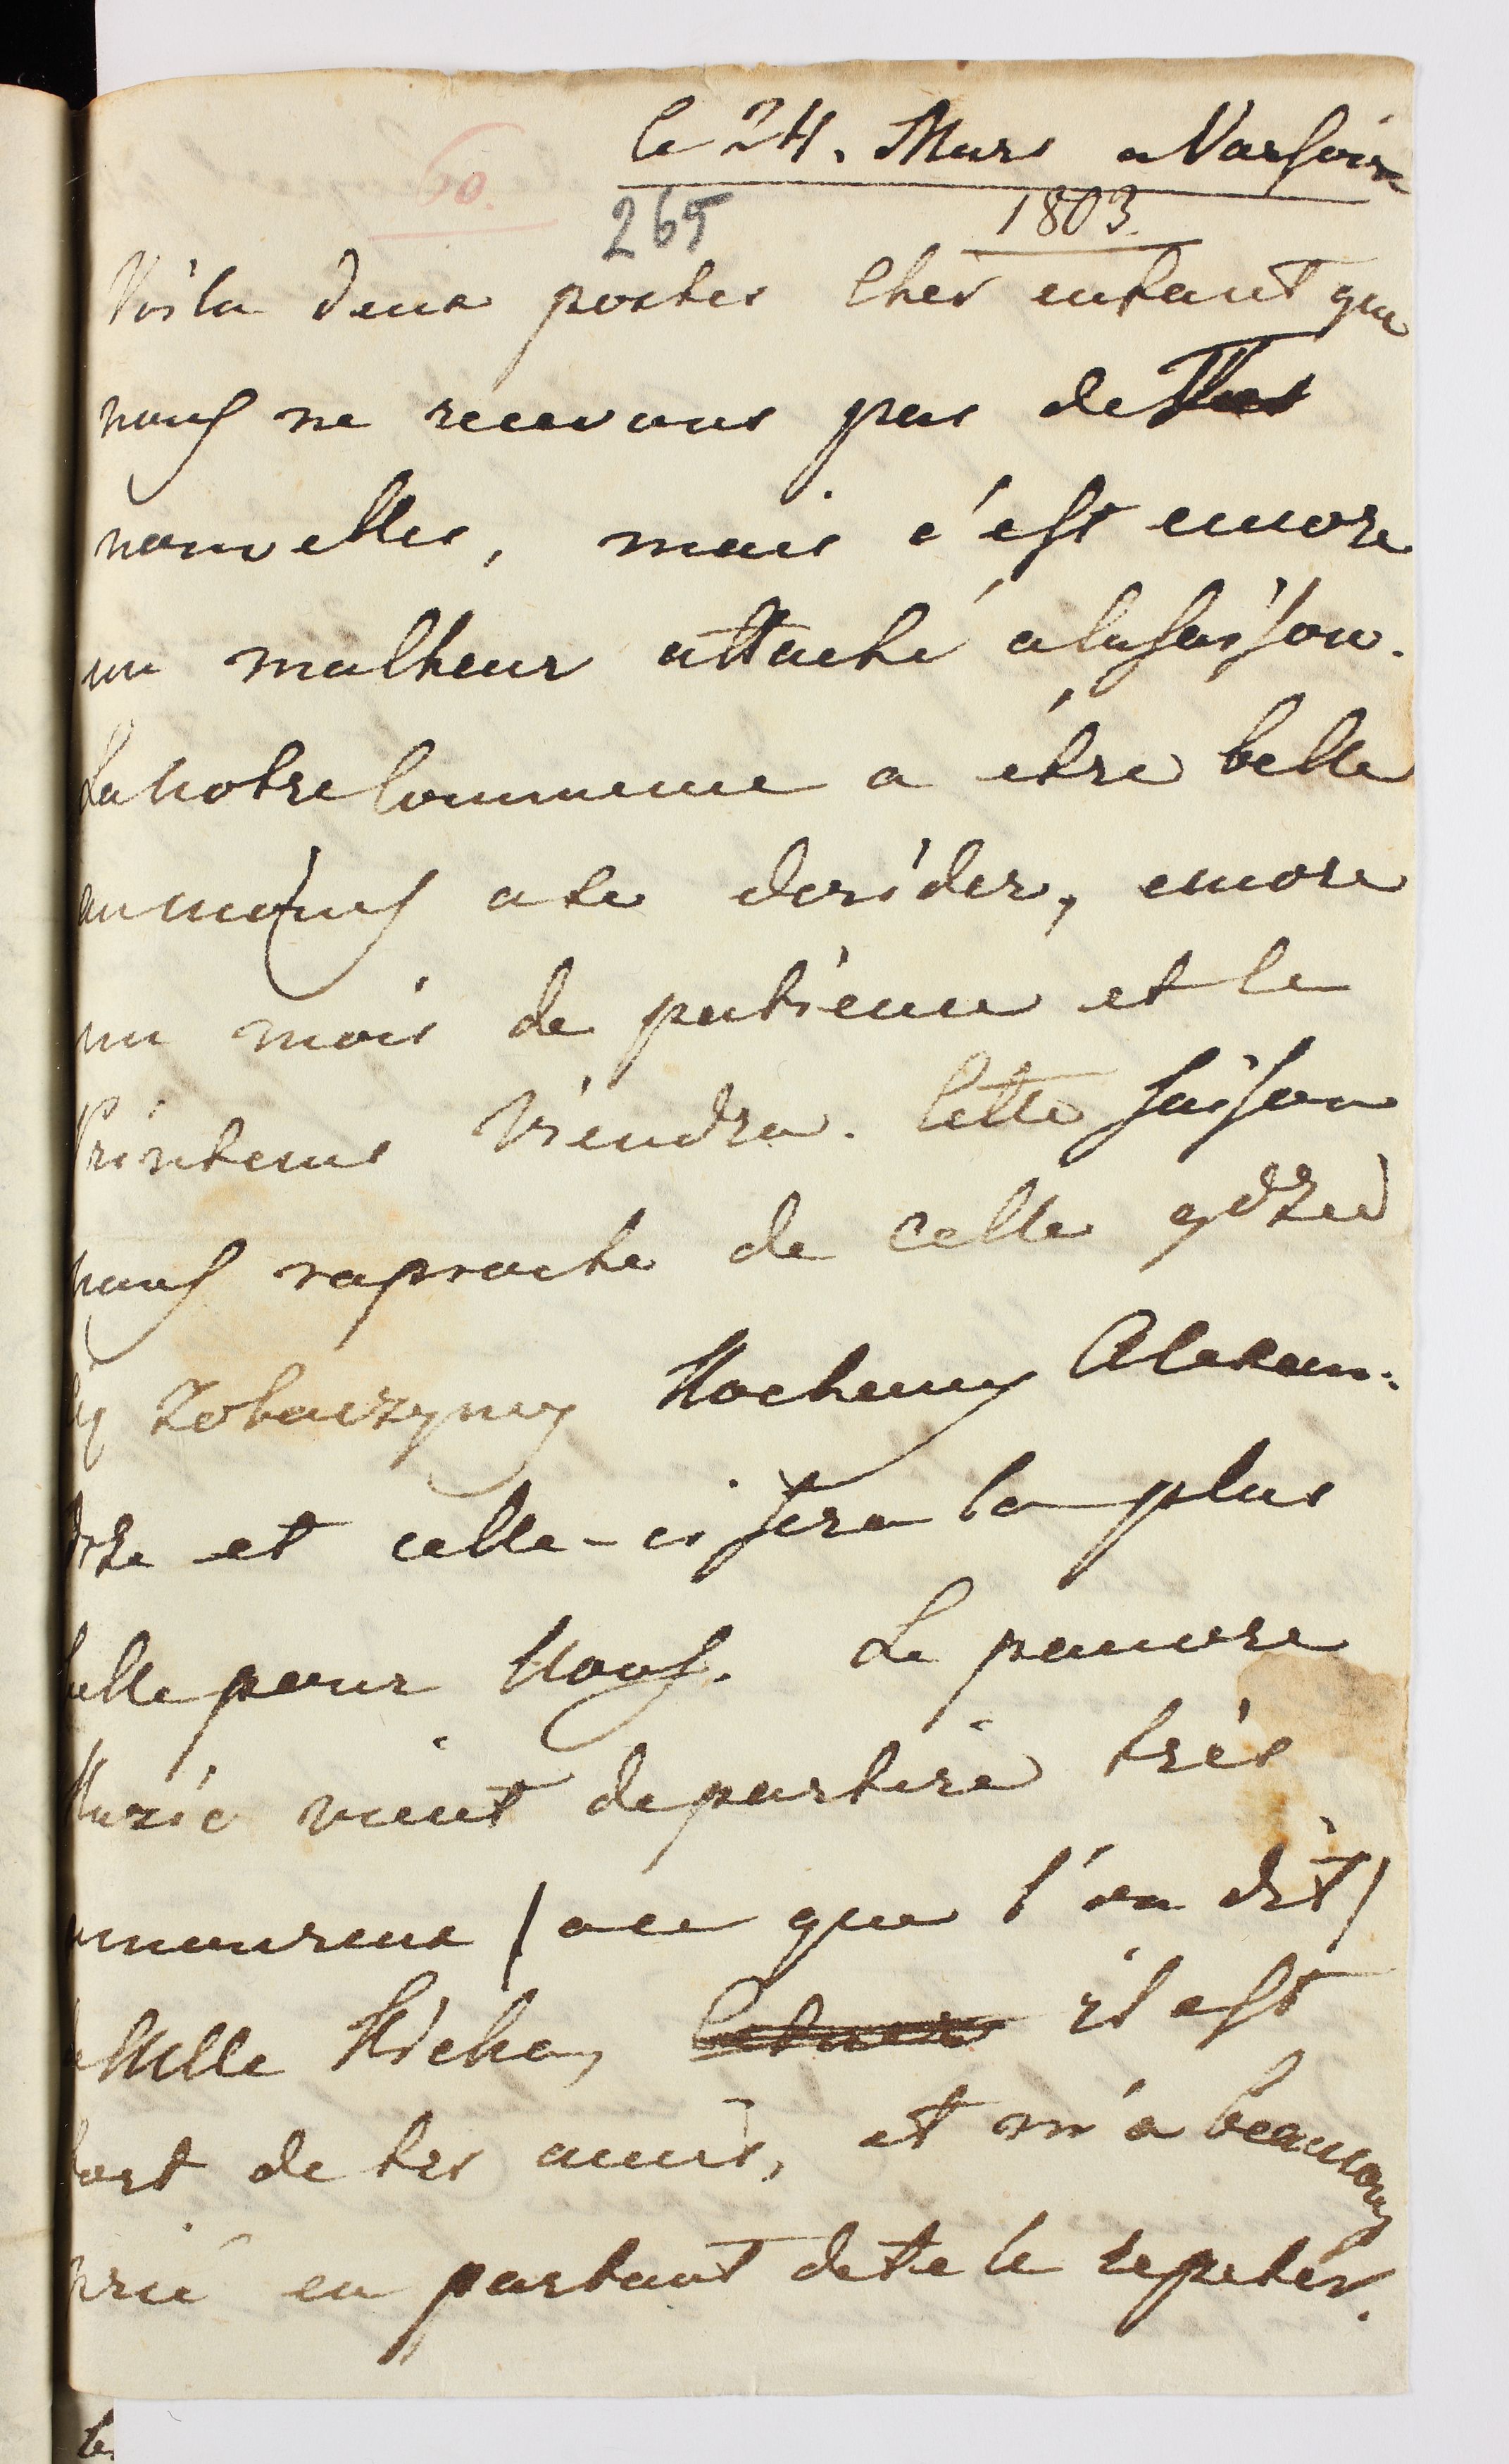 le 24. Mars a Varsovie
60.
265
1803.
Voila deux postes Cher enfant que
nous ne recevons pas de Tes
nouvelles, mais c'est encore
un malheur attaché a la saison.
La notre commence a étre belle
au moins a se derider, encore
un mois de patience et le
Printems Viendra. Cette saison
nous raproche de celle gdzie
Zobaczymy Kochany Alexan:
dre et celle-ci sera la plus
belle pour Nous. Le pauvre
vient de partire très
amoureux /a ce que l'on dit/
de Mlle il est
fort de tes amis, et m'a beaucoup
prié en partant de te le repeter.